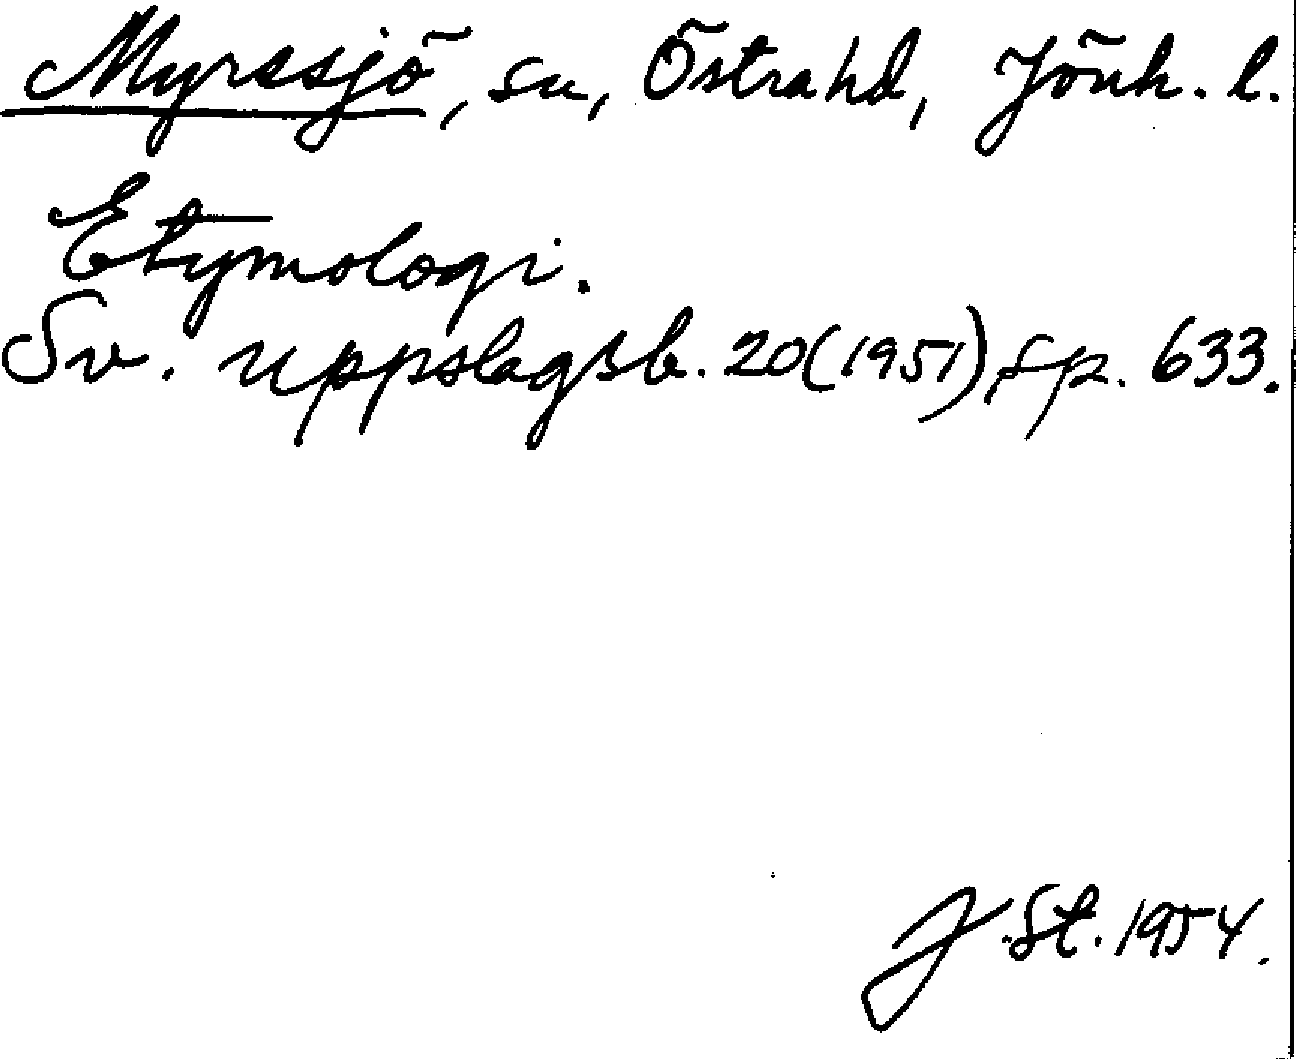 Myresjö, sn, Östra hd, Jönk. l.
Etymologi.
Sv. uppslagsb. 20(1951), sp. 633.
J. St. 1954.